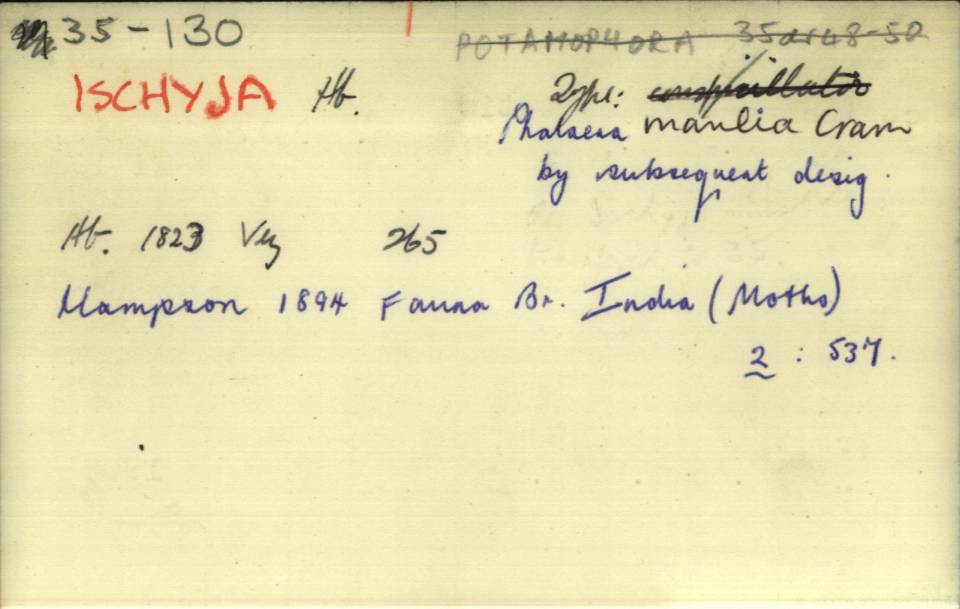 35-130
POTAMOPHORA 35dr48-50
ISCHYJA Hb. Type: conspicillator
Phalaena manlia Cram
by subsequent desig.
Hb. 1823 Verz 265
Hampson 1894 Fauna Br. India (Moths)
2 : 537.